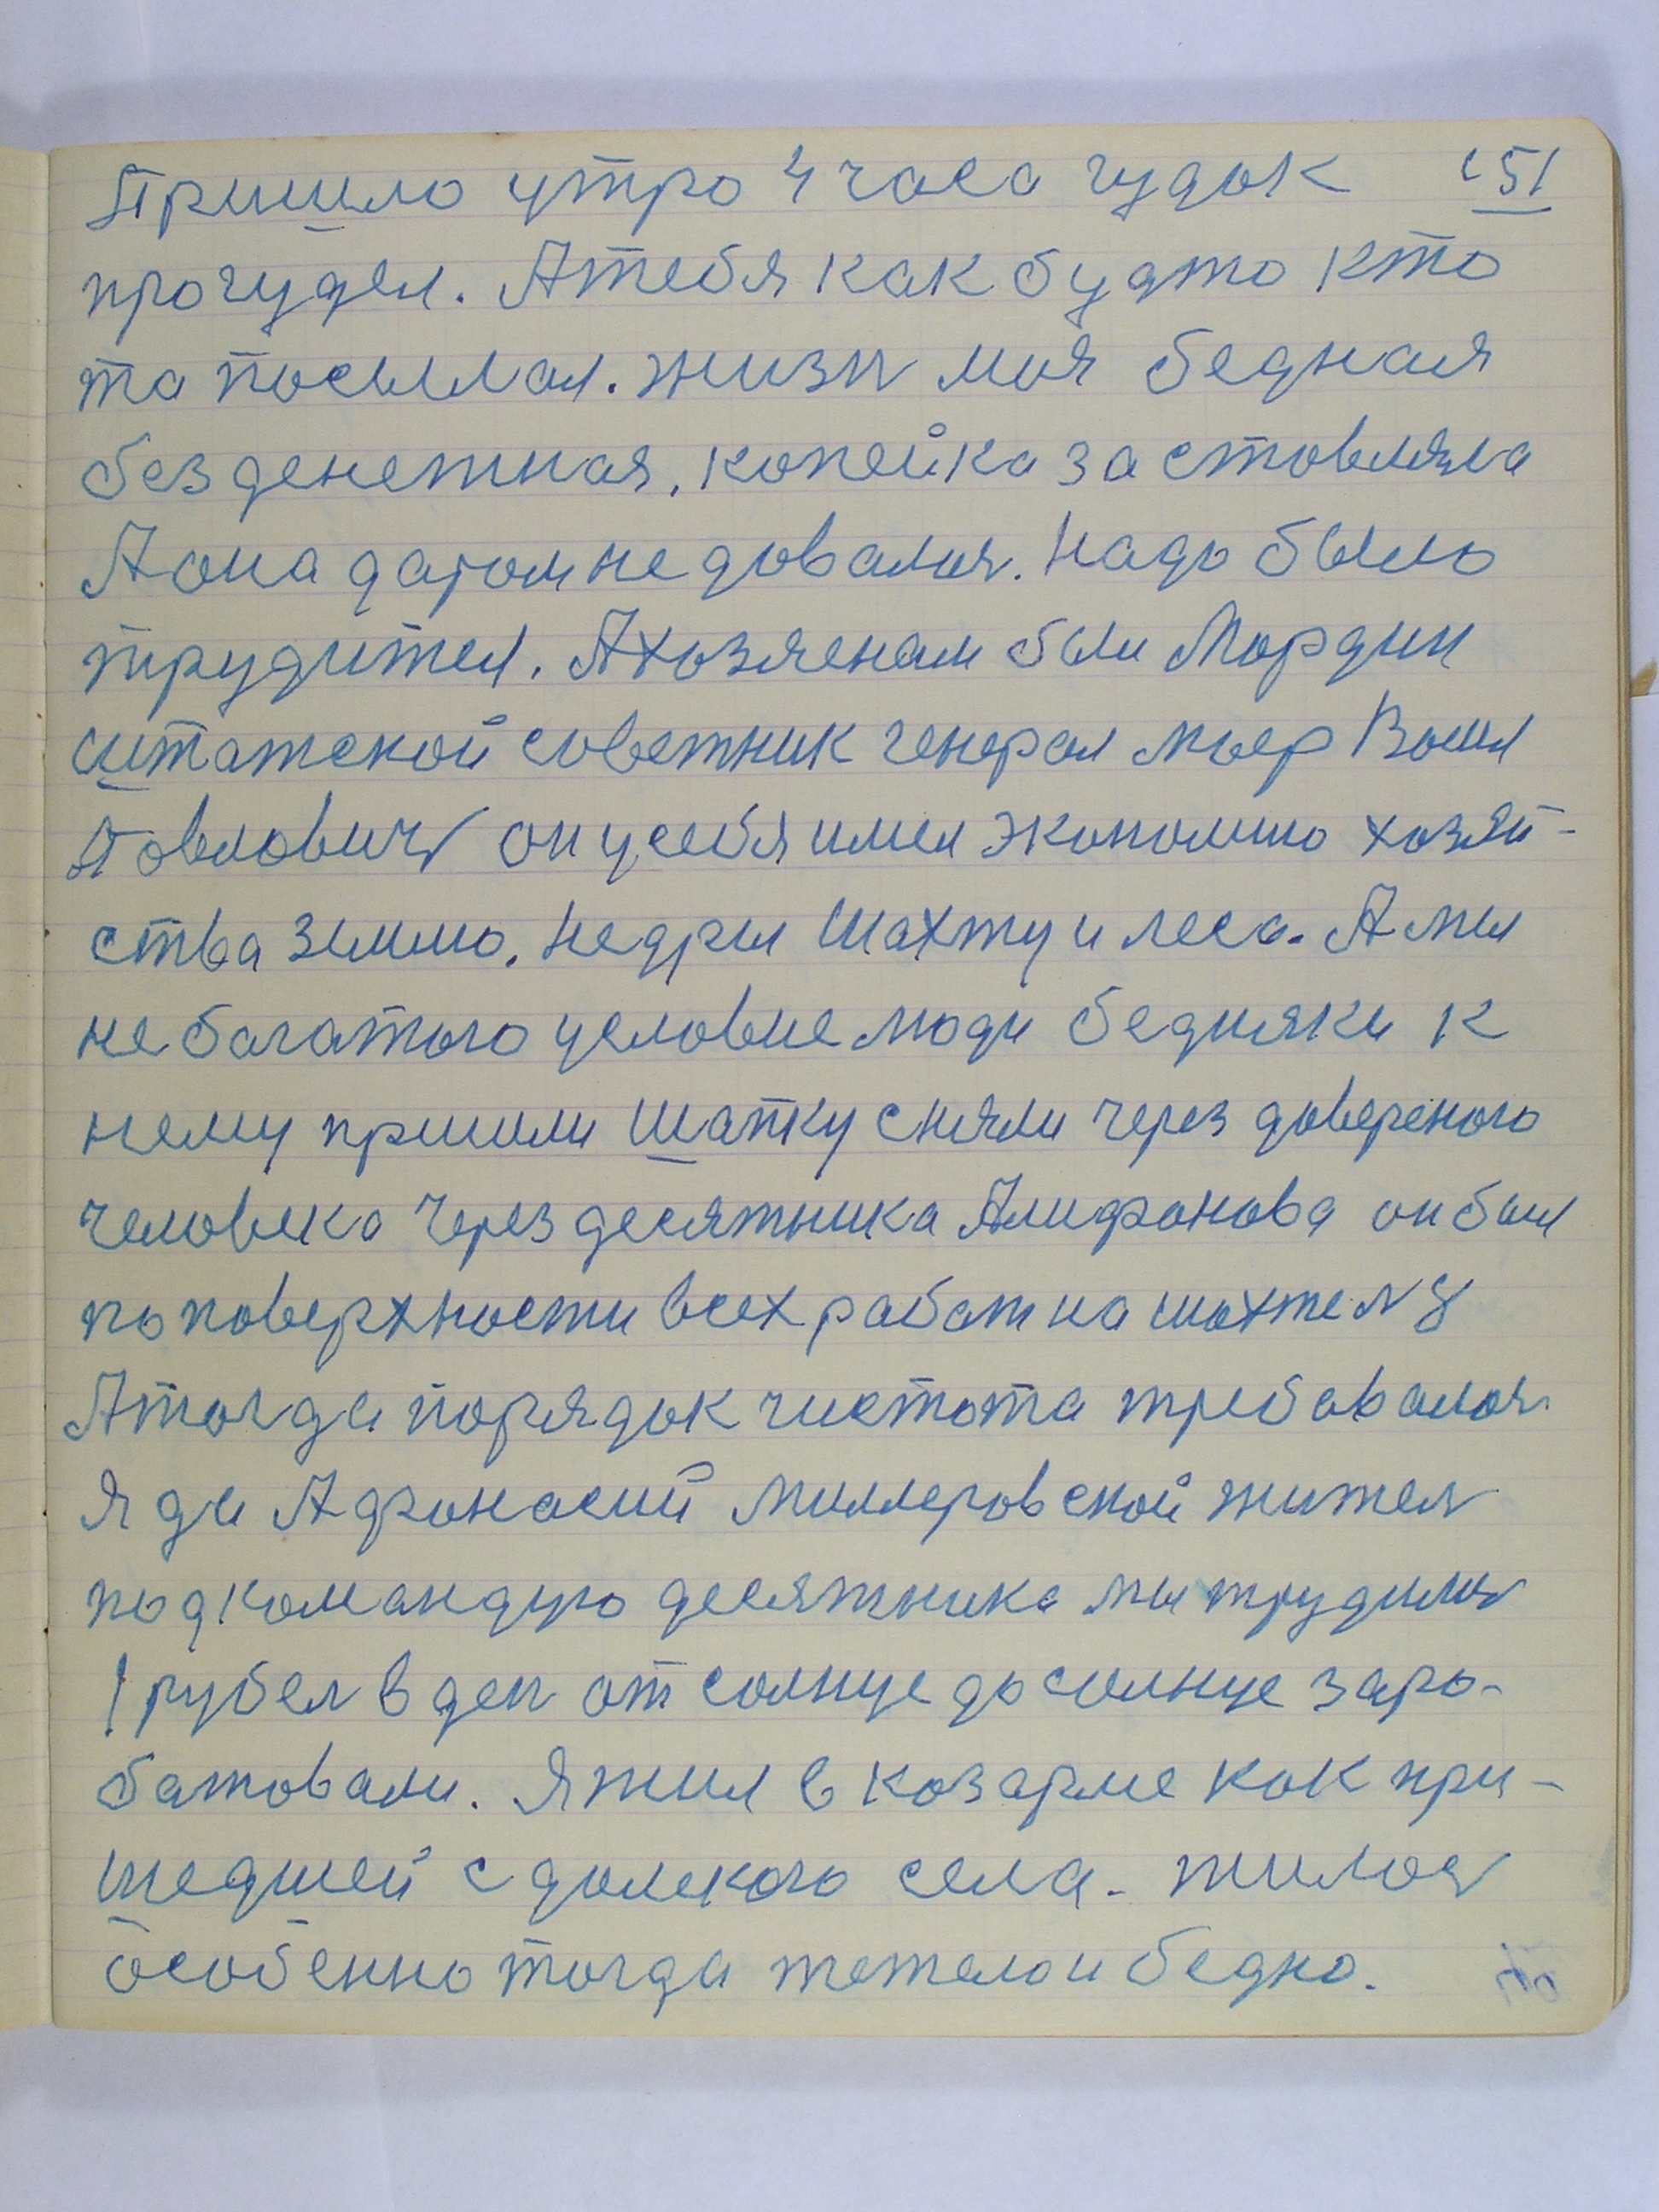 Пришло утро 4 часа гудок 151
прогудел. А тебя как будто кто
та посылал. жизн моя бедная
безденежная, копейка заставляла
А она даром не довалня. Надо было
трудится. А хозяенам был Мордин
штатской советник генерал мьер
Повлович он у себя имел экономию хозяй-
ства землю. недры шахту и леса. А мы
не богатого условие люди бедняки к
нему пришли шапку сняли через довереного
человека через десятника Алифанова он был
по поверхности всех работ на шахте N 8
А тогда порядок чистота требавалоя
Я да Афонасий миллеровской жител
под командую десятника мы трудилис
1 рубел в ден от солнце до солнце заро-
батовали. Я жил в козарме как при-
шедшей с долекого села. жилося
особенно тогда тежело и бедно.